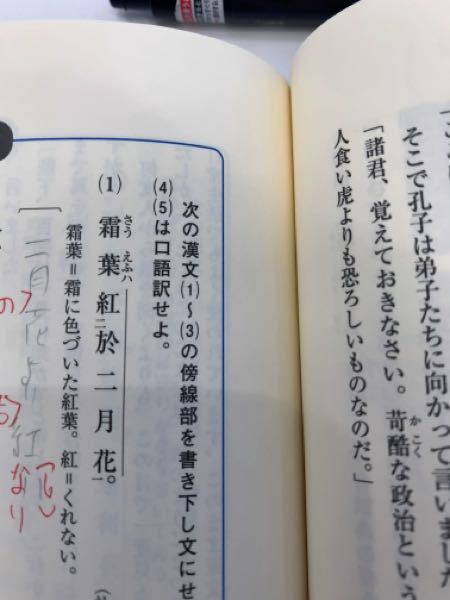 そこで孔子は弟子たちに向かって言いました
「諸君、覚えておきなさい。苛酷な政治という
人食い虎よりも恐ろしいものなのだ。」
次の漢文(1)〜(3)の傍線部を書き下し文にせ
(4)(5)は口語訳せよ。
(1) 霜葉ハ紅二於二月花一。
霜葉=霜に色づいた紅葉。紅=くれない。
二月花より紅
なり